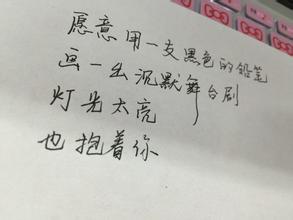 愿意用一支黑色的铅笔
画一出沉默舞台剧
灯光太亮
也抱着你